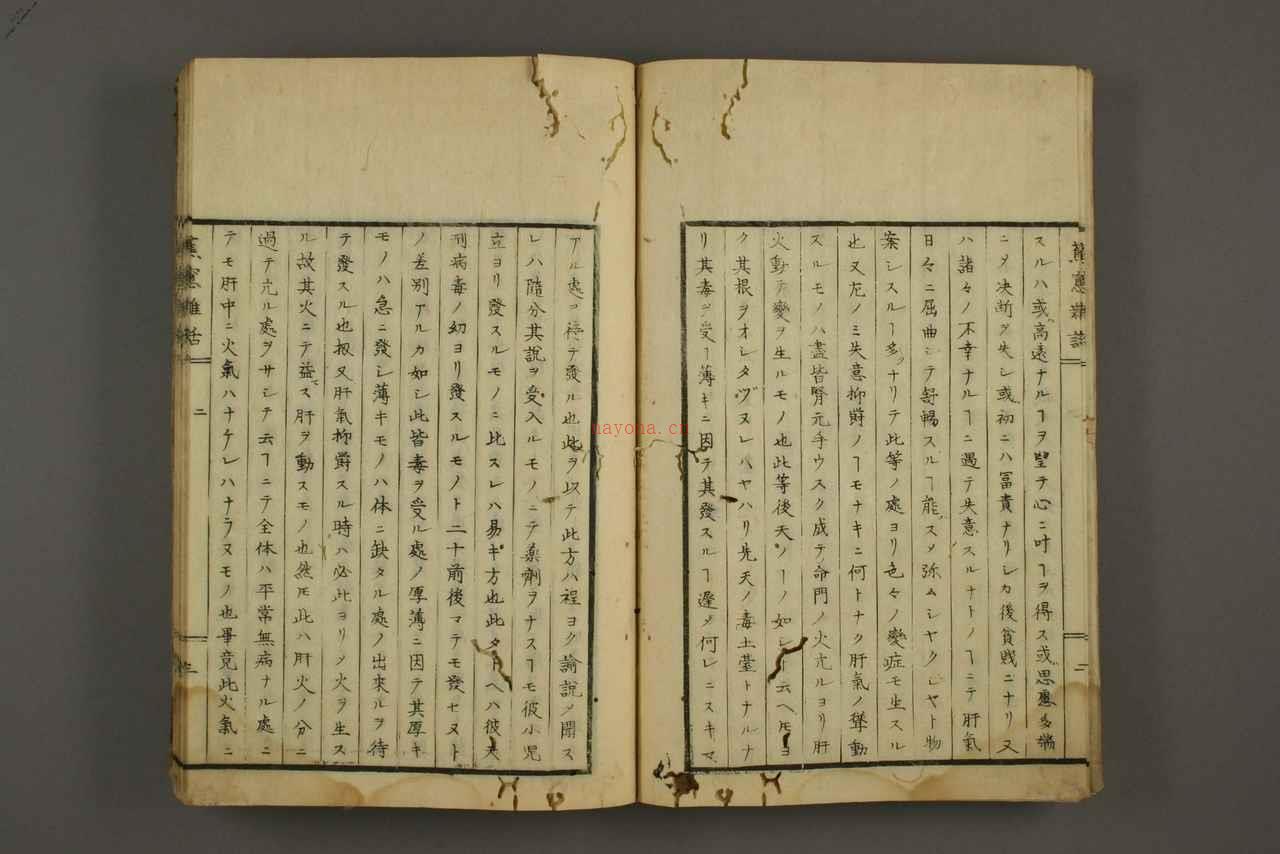 スルハ或高遠ナルヿヲ望テ心ニ叶ヿヲ得ス或思慮多端
ニメ决断ヲ失シ或初ニハ冨貴ナリシカ後貧賤ニナリ又
ハ諸々ノ不幸ナルヿニ遇テ失意スルナトノヿニテ肝氣
日々ニ屈曲シテ舒暢スルヿ能スメ弥ムシヤクシヤト物
案シスルヿ多ナリテ此等ノ處ヨリ色々ノ變症モ生スル
也又左ノミ失意抑欝ノヿモナキニ何トナク肝氣ノ聳動
スルモノハ盡皆腎元手ウスク成テ命門ノ火亢ルヨリ肝
火動テ變ヲ生ルモノ也此等後天ノヿノ如シト云ヘ𪜈ヨ
ク其根ヲオシタヅヌレハヤハリ先天ノ毒土臺トナルナ
リ其毒ヲ受ヿ薄キニ因テ其發スルヿ遲メ何レニスキマ
アル處ヲ待テ發ル也此ヲ以テ此方ハ程ヨク諭説メ聞ス
レハ隨分其説ヲ受入ルモノニテ薬劑ヲナスヿモ彼小児
立ヨリ發スルモノニ比スレハ易キ方也此タトヘハ彼天
刑病毒ノ幼ヨリ發スルモノト二十前後マテモ發セヌト
ノ差別アルカ如シ此皆毒ヲ受ル處ノ厚薄ニ因テ其厚キ
モノハ急ニ發シ薄キモノハ体ニ缺タル處ノ出來ルヲ待
テ發スル也扨又肝氣抑欝スル時ハ必此ヨリメ火ヲ生ス
ル故其火ニテ益ス肝ヲ動スモノ也然𪜈此ハ肝火ノ分ニ
過テ亢ル處ヲサシテ云ヿニテ全体ハ平常無病ナル處ニ
テモ肝中ニ火氣ハナケレハナラヌモノ也畢竟此火氣ニ
蕉窻雜話
二
nayona.cn